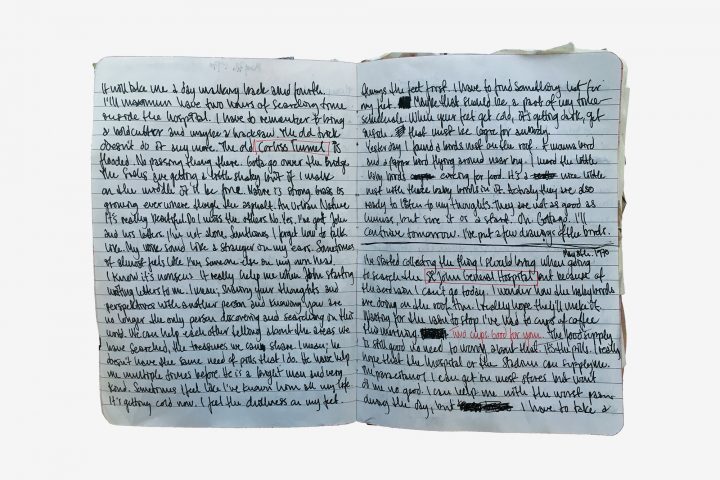 It will take me a day walking back and fourth.
I'll maximum have two hours of searching time
outside the hospital. I have to remember to bring
a boldcutter and maybe a hacksaw. The old trick
doesn't do it any more. The old Corliss Tunnel is
flooded. No passing thing there. Gotta go over the bridge
The are getting a little shaky but if I walk
on the middle it'll be fine. Nature is strong. Grass is
growing everywhere through the asphalt. An Urban Nature
It's really beautiful. Do I miss the others. No. Yes, I've got John
and his letters. I'm not alone. Sometimes I forget how to talk
like. My voice sound like a stranger on my ears. Sometimes
it almost feels like I'm someone else on my own head.
I know it's nonsense. It really help me when John starting
writing letters to me. I mean; sharing your thoughts and
perspectives with another person and knowing you are
no longer the only person discovering and searching on this
world. We can help each other telling about the areas we
have searched, the treasures we could share. I mean; he
doesn't have the same need of pills that I do. He have help
me multiple times before. He is a bright man and very
kind. Sometimes I feel like I've known him all my life
It's getting cold now. I feel the chillness on my feet.
Always the feet first. I have to find something hot for
my feet. Maybe that should be a part of my
schedule. When your feet get cold, it's getting dark, get
inside. that must be logic for anybody.
Yesterday I found a birds nest on the roof. A mama bird
and a pappa bird flying around near by. I heard the little
baby birds crying for food. It's a nice little
nest with three baby birds in it. Actually they are also
ready to listen to my thoughts. They are not as good as
, but sure it is a start. Oh Gottago. I'll
continue tomorrow. I've put a few drawings of the birds.
May 8th. 1970
I've started collecting the thing I should bring when going
to search the St John General Hospital but because of
the I can't go today. I wonder how the baby birds
are doing on the roof. Hm. I really hope they'll make it.
Waiting for the rain to stop I've had to cups of coffee
this morning. Two cups good for you. The food supply
is still good. No need to worry about that. It's the pills. I really
hope that the hospital or the stadium can supply me.
The paracetamol I can get on most stores but won't
do me no good. I can help me with the worst pains
during the day, but I have to take a